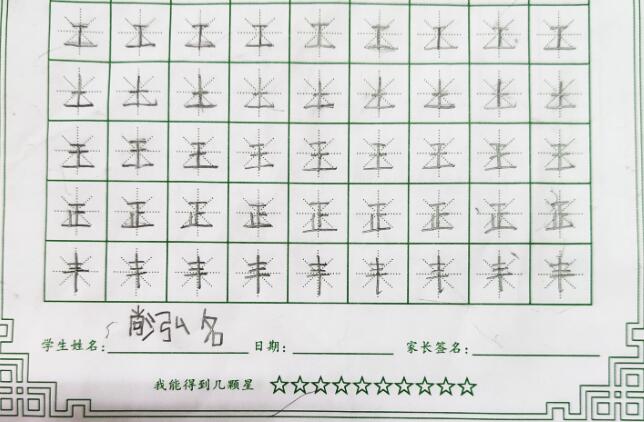 工工工工工工工工工
土土土土土土土土土
王王王王王王王王王
正正正正正正正正正
丰丰丰丰丰丰丰丰丰
学生姓名: 弘名 日期: 家长签名:
我能得到几颗星 ☆☆☆☆☆☆☆☆☆☆